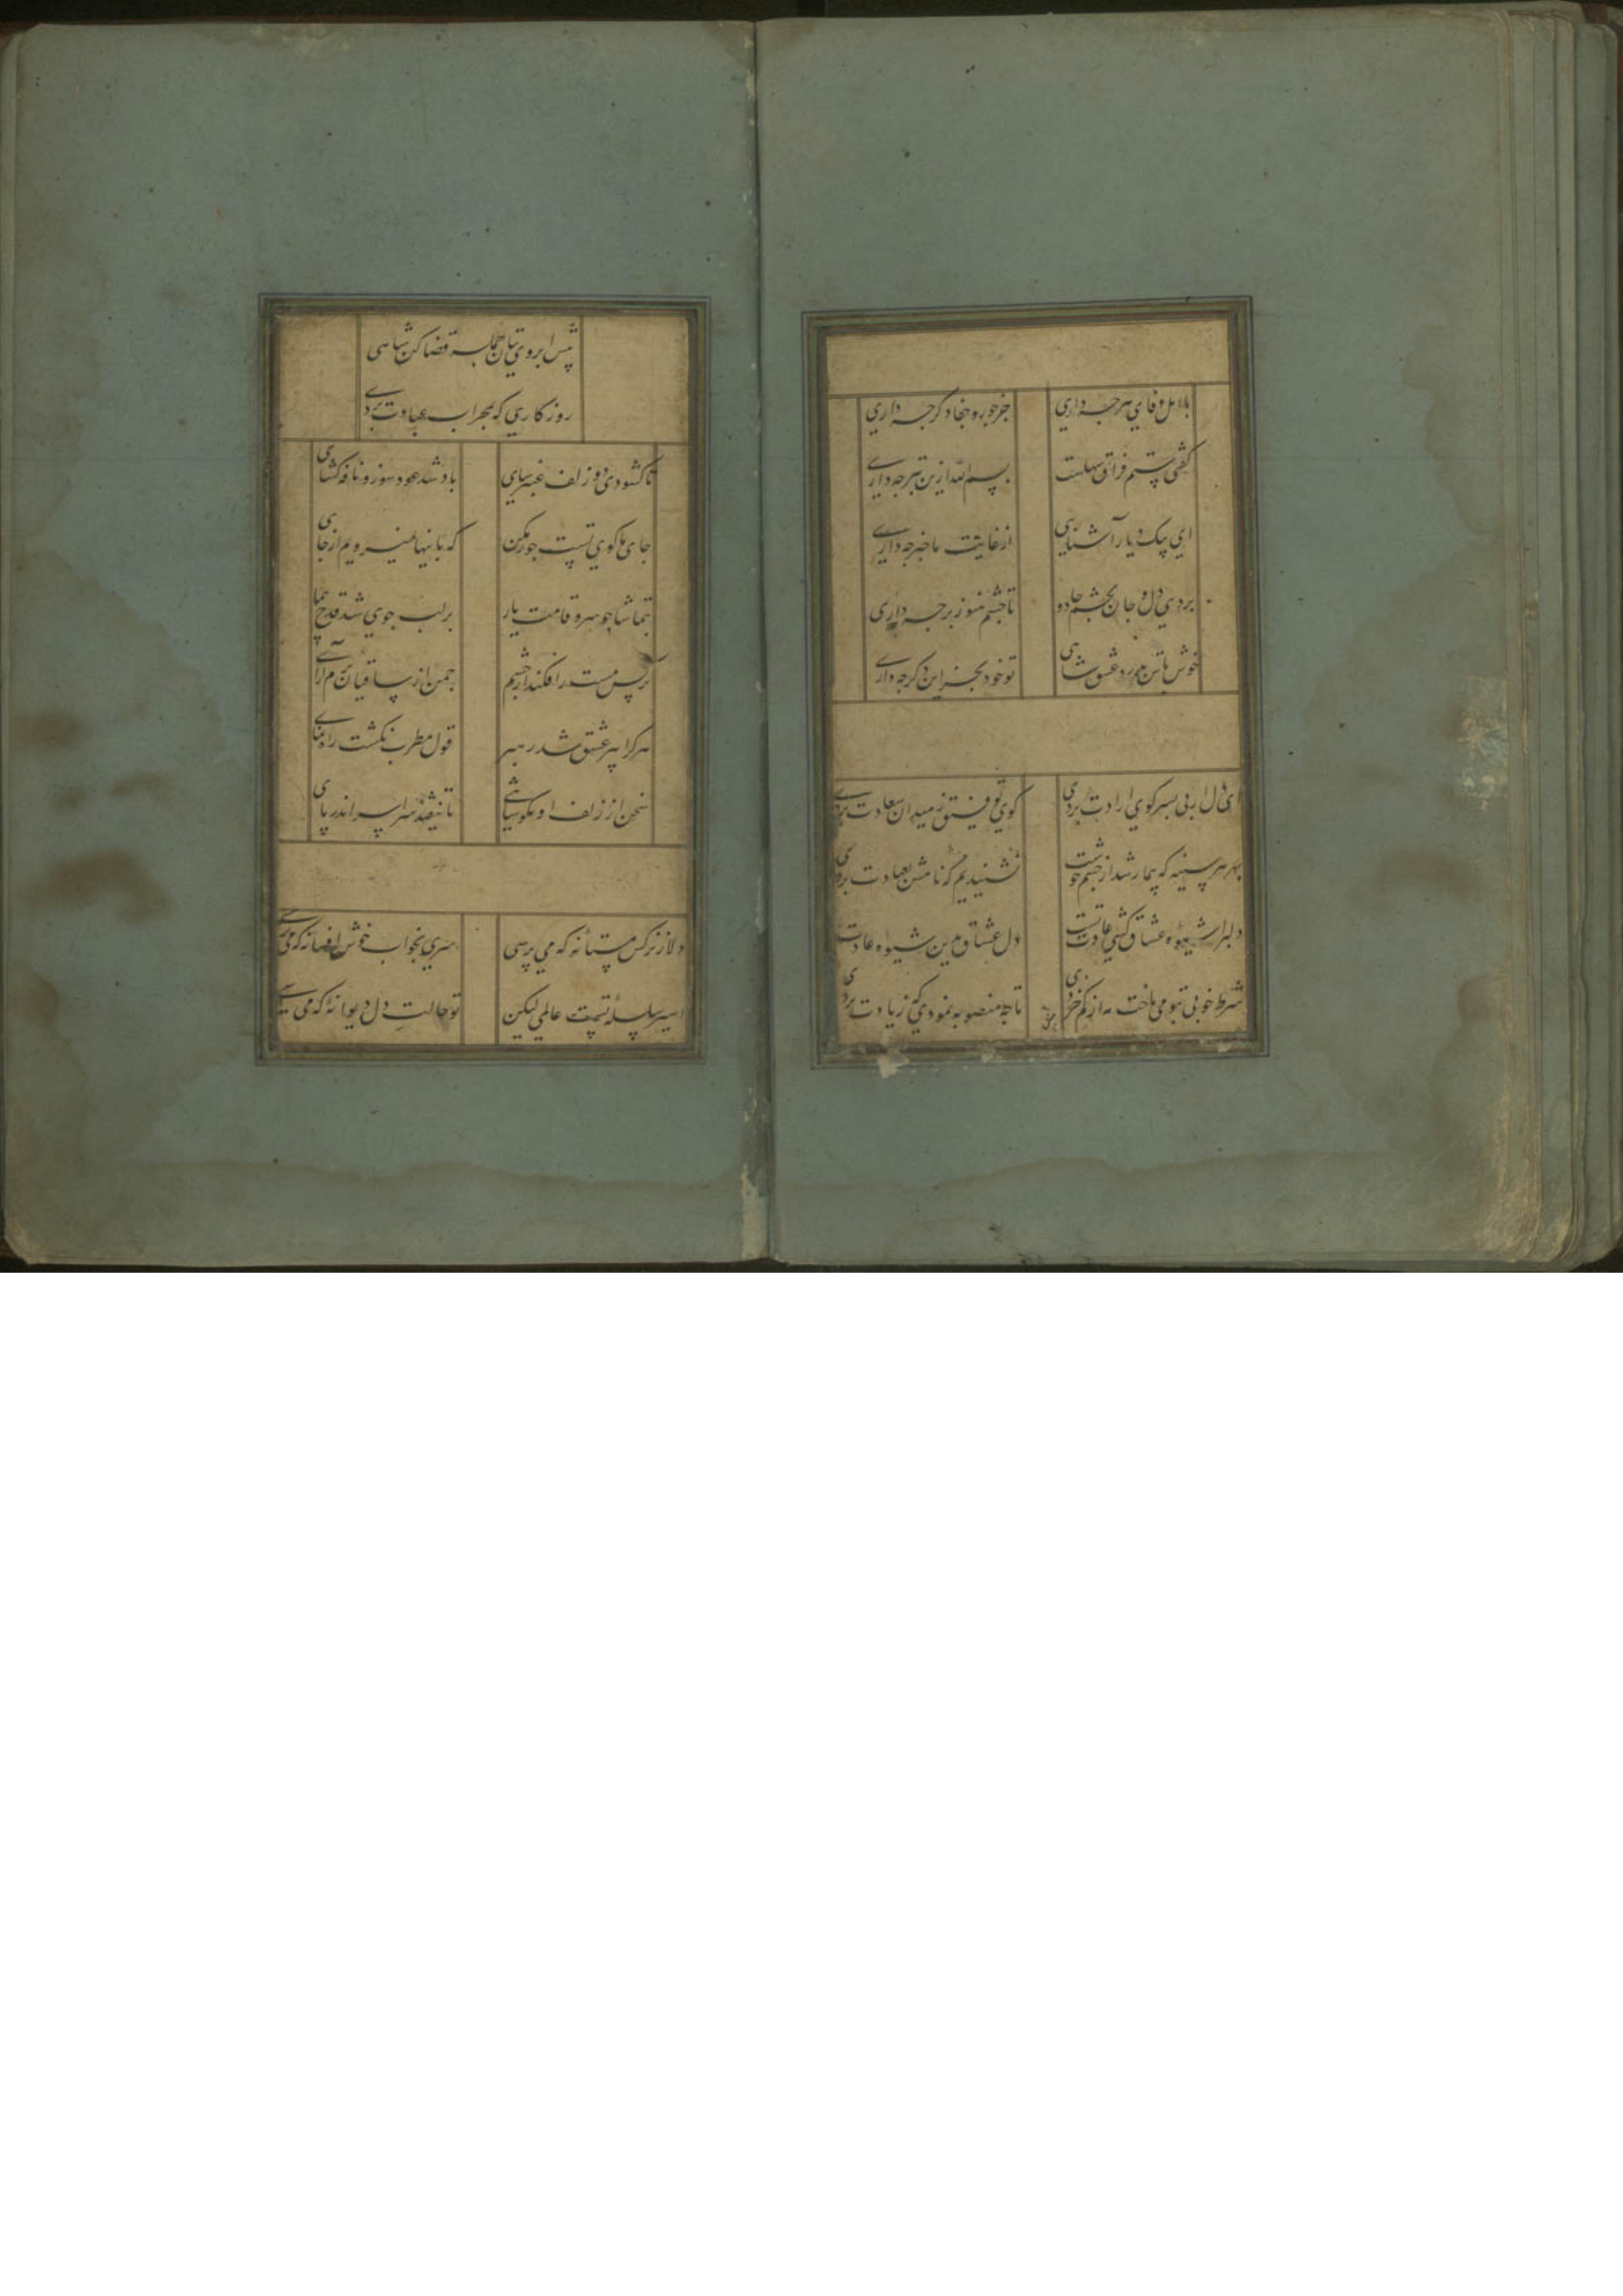 با اهل وفای هرچه داری جز جور و جفا دگر چه داری
گفتی ستم فراق سهلست بسم الله ازین بتر چه داری
ای پیک دیار آشنایی از غایت ما خبر چه داری
بردی دل و جان بچشم جادو تا چشم هنوز بر چه داری
خوش باش بدرد عشق شاهی تو خود بجز این دگر چه داری
ای دل ار پی بسر کوی ارادت بردی کوی توفیق ز میدان سعادت بردی
بهر هر سینه که بیمار شد از چشم خوشت نشنیدیم که نامش بعیادت بردی
دلبرا شیوه عشاق کشی عادت تست دل عشاق بدین شیوه و عادت بردی
شرط خوبی بتو می باخت مه از کم خردی تا چه منصوبه نمودی که زیادت بردی
پیش ابروی بتان جمله قضا کن شاهی
روزگاری که بمحراب عبادت بردی
تا کشودی دو زلف عنبرسای باد شد عود سوز و نافه کشای
جای ما کوی تست جور مکن که باینها نمیرویم از جای
بتماشا چو سرو قامت یار بر لب جوی شد قدح پیمای
نرکس مست را فکند از چشم چمن از ساقیان بزم آرای
هر کرا پیر عشق شد رهبر قول مطرب نکشت راه نمای
سخن از زلف او مکو شاهی تا نیفتد سراسر اندر پای
دلا ز نرکس مستانه که می پرسی سری بخواب خوش افسانه که می پرسی
اسیر سلسله تست عالمی لیکن تو حالت دل دیوانه که می پرسی